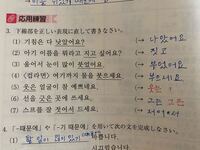 応用練習
3. 下線部を正しい表現に直して書きなさい。
(1) 기침은 다 낫았어요? (→ 나았어요
(2) 아기 이름을 뭐라고 지고 싶어요? (→ 짓고
(3) 울어서 눈이 많이 붓였어요. (→ 부었어요
(4) <컵라면> 여기까지 물을 붓으세요. (→ 부으세요
(5) 웃은 얼굴이 참 예쁘네요. (→ 웃은
(6) 선을 긋은 곳에 쓰세요. (→ 그은
(7) 스프를 잘 젓어서 드세요. (→ 저어서
4. 「-때문에」や「-기 때문에」を用いて次の文を完成しなさい。
(1) 할 일이 많이 있기